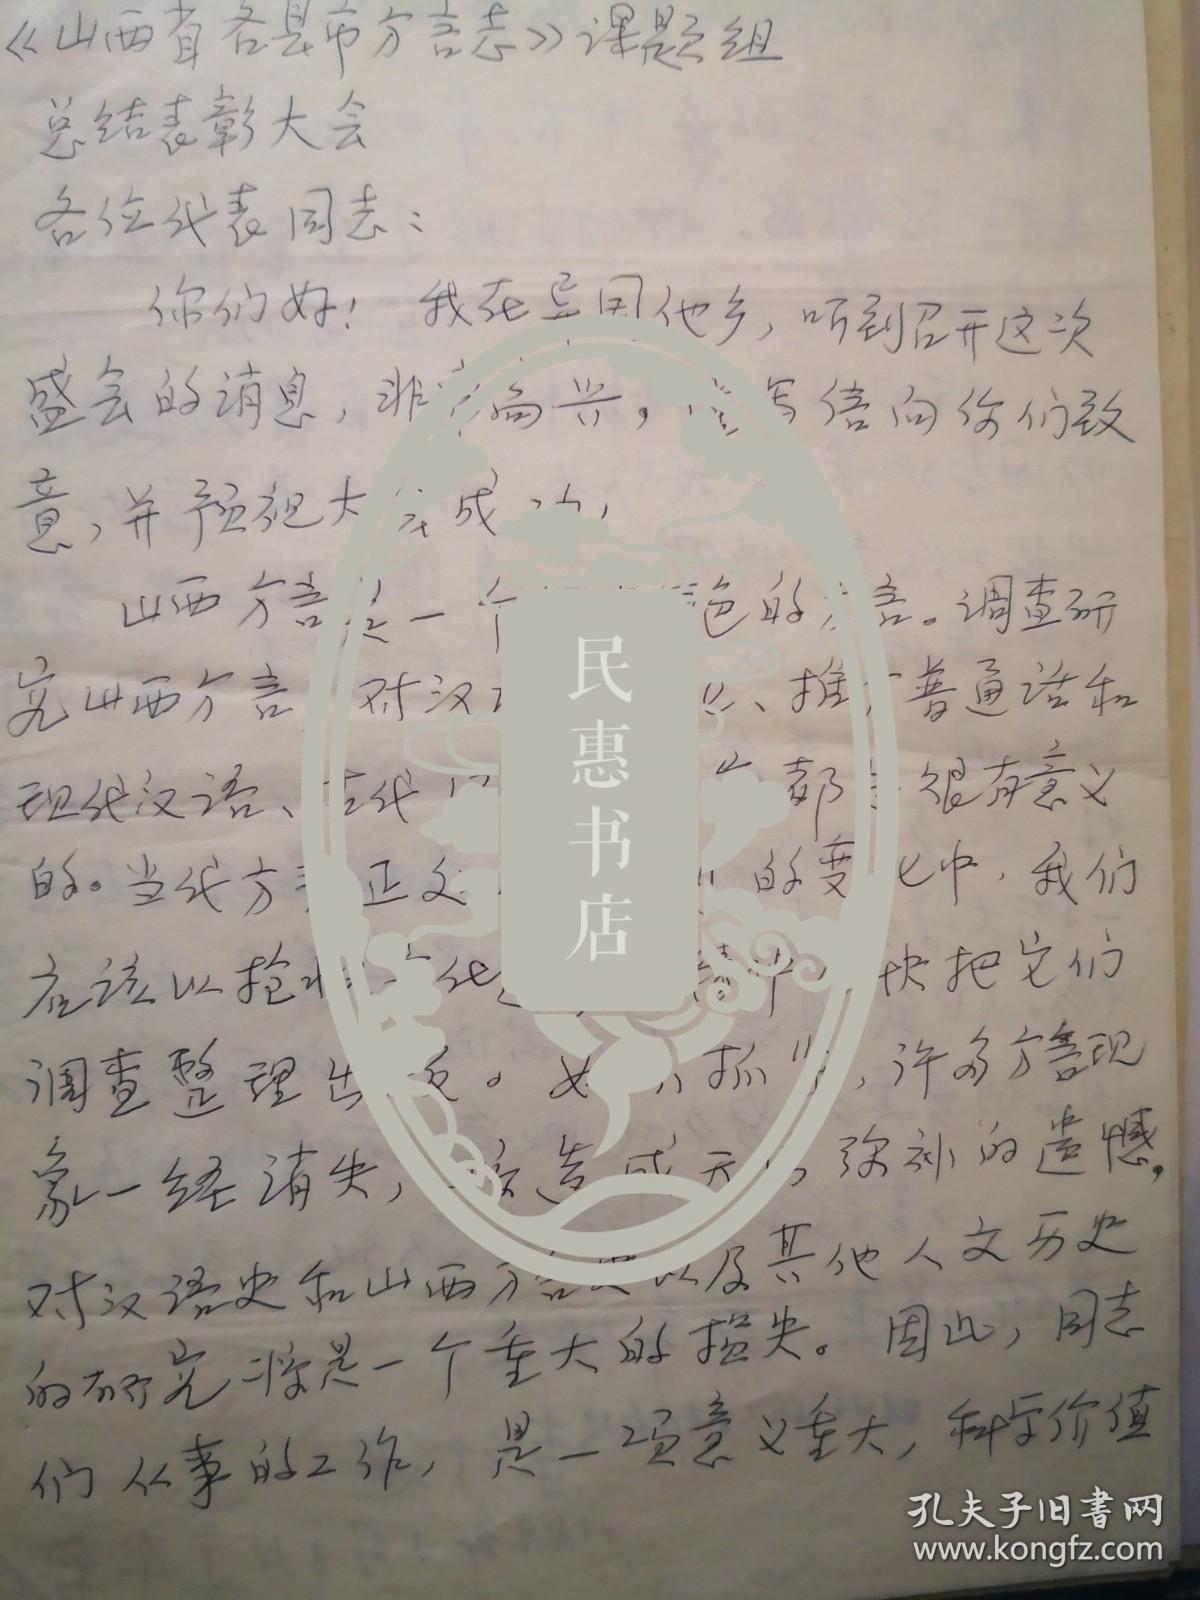 《山西省各县市方言志》课题组
总结表彰大会
各位代表同志：
你们好！我在异国他乡，听到召开这次
盛会的消息，非常高兴，写信向你们致
意，并预祝大会成功，
山西方言是一个色的方言。调查研
究山西方言，对汉、推广普通话和
现代汉语、古代都是很有意义
的。当代方言正的变化中，我们
应该以抢快把它们
调查整理出版。如不抓紧，许多方言现
象一经消失，造成无弥补的遗憾，
对汉语史和山西方言史以及其他人文历史
的研究将是一个重大的损失。因此，同志
们从事的工作，是一项意义重大，科学价值
民惠书店
孔夫子旧书网
www.kongfz.com